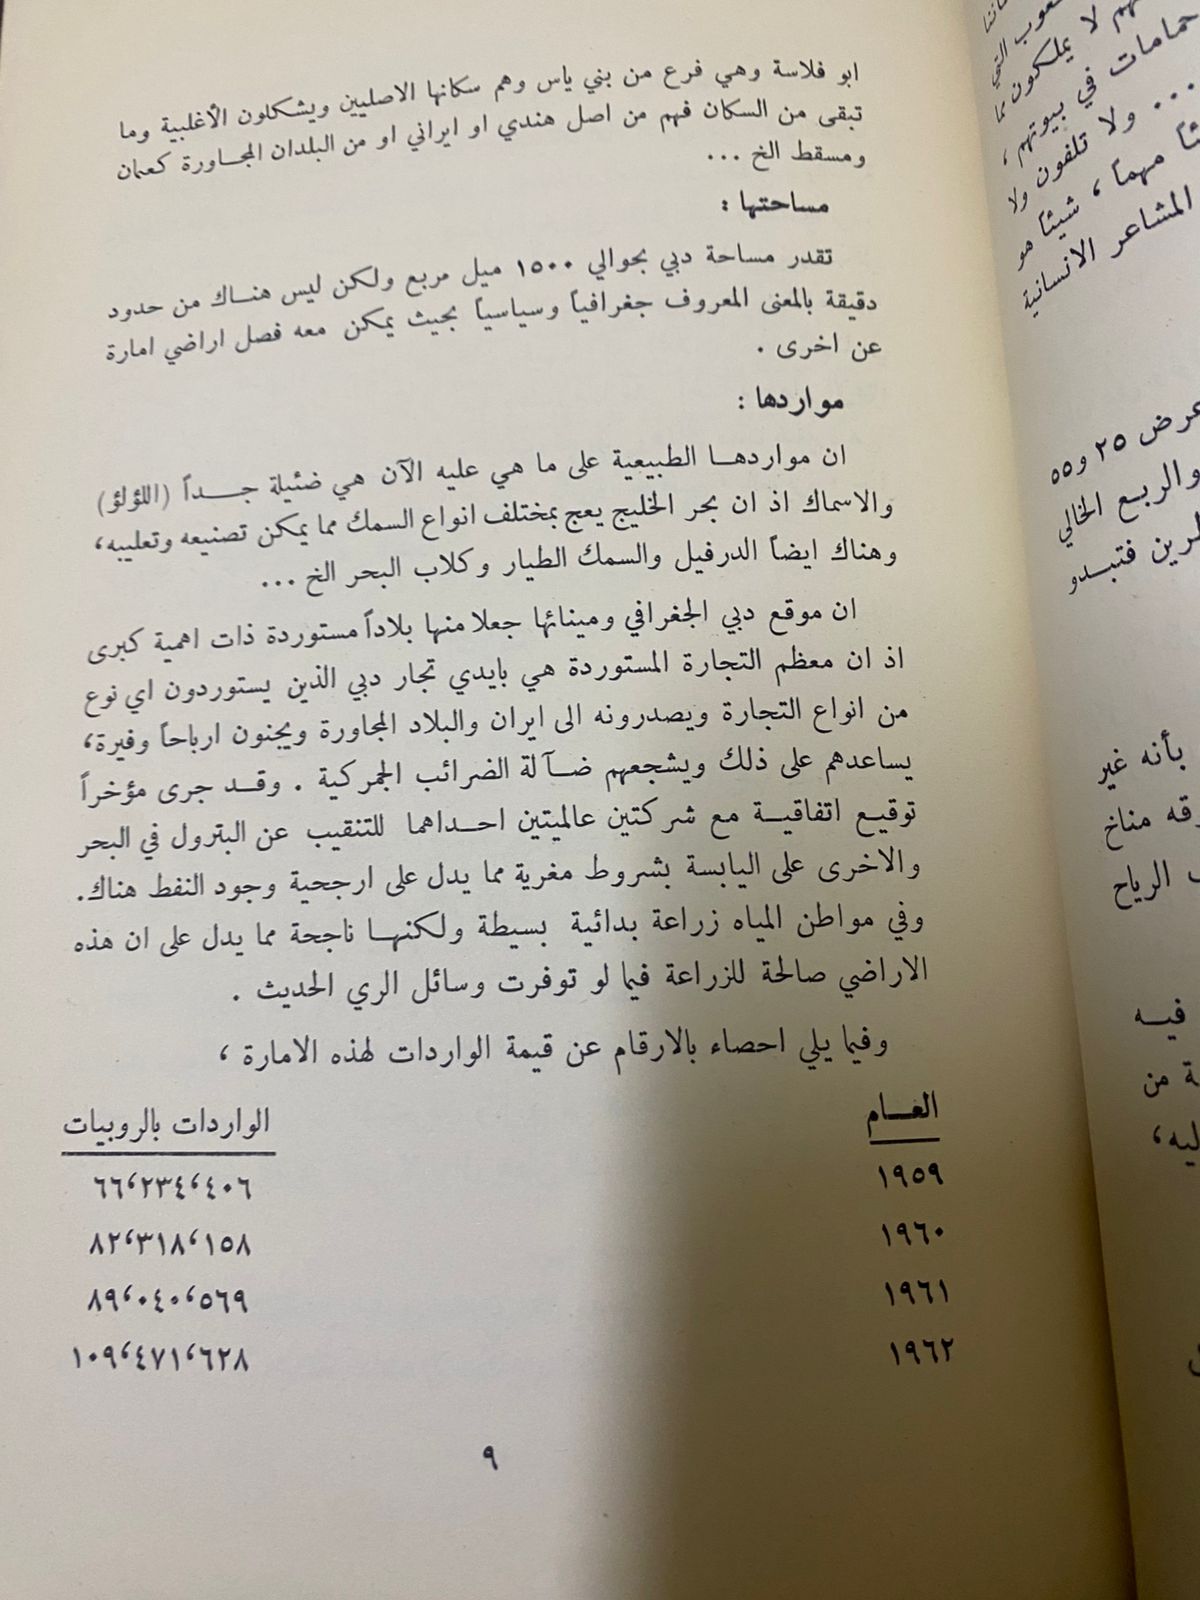 ابو فلاسة وهي فرع من بني ياس وهم سكانها الاصليين ويشكلون الأغلبية وما
تبقى من السكان فهم من اصل هندي او ايراني او من البلدان المجاورة كعمان
ومسقط الخ ...
مساحتها :
تقدر مساحة دبي بحوالي ١٥٠٠ ميل مربع ولكن ليس هناك من حدود
دقيقة بالمعنى المعروف جغرافياً وسياسياً بحيث يمكن معه فصل اراضي امارة
عن اخرى .
مواردها :
ان مواردها الطبيعية على ما هي عليه الآن هي ضئيلة جداً (اللؤلؤ)
والاسماك اذ ان بحر الخليج يعج بمختلف انواع السمك مما يمكن تصنيعه وتعليبه،
وهناك ايضاً الدرفيل والسمك الطيار وكلاب البحر الخ ...
ان موقع دبي الجغرافي ومينائها جعلا منها بلاداً مستوردة ذات اهمية كبرى
اذ ان معظم التجارة المستوردة هي بايدي تجار دبي الذين يستوردون اي نوع
من انواع التجارة ويصدرونه الى ايران والبلاد المجاورة ويجنون ارباحاً وفيرة،
يساعدهم على ذلك ويشجعهم ضآلة الضرائب الجمركية . وقد جرى مؤخراً
توقيع اتفاقية مع شركتين عالميتين احداهما للتنقيب عن البترول في البحر
والاخرى على اليابسة بشروط مغرية مما يدل على ارجحية وجود النفط هناك.
وفي مواطن المياه زراعة بدائية بسيطة ولكنها ناجحة مما يدل على ان هذه
الاراضي صالحة للزراعة فيما لو توفرت وسائل الري الحديث .
وفيما يلي احصاء بالارقام عن قيمة الواردات لهذه الامارة ،
العام الواردات بالروبيات
١٩٥٩ ٦٦،٢٣٤،٤٠٦
١٩٦٠ ٨٢،٣١٨،١٥٨
١٩٦١ ٨٩،٠٤٠،٥٦٩
١٩٦٢ ١٠٩،٤٧١،٦٢٨
٩
التي
لا يملكون مما
حمامات في بيوتهم ،
... ولا تلفون ولا
مهماً ، شيئاً هو
المشاعر الانسانية
عرض ٢٥ و٥٥
والربع الخالي
فتبدو
بأنه غير
مناخ
الرياح
فيه
من